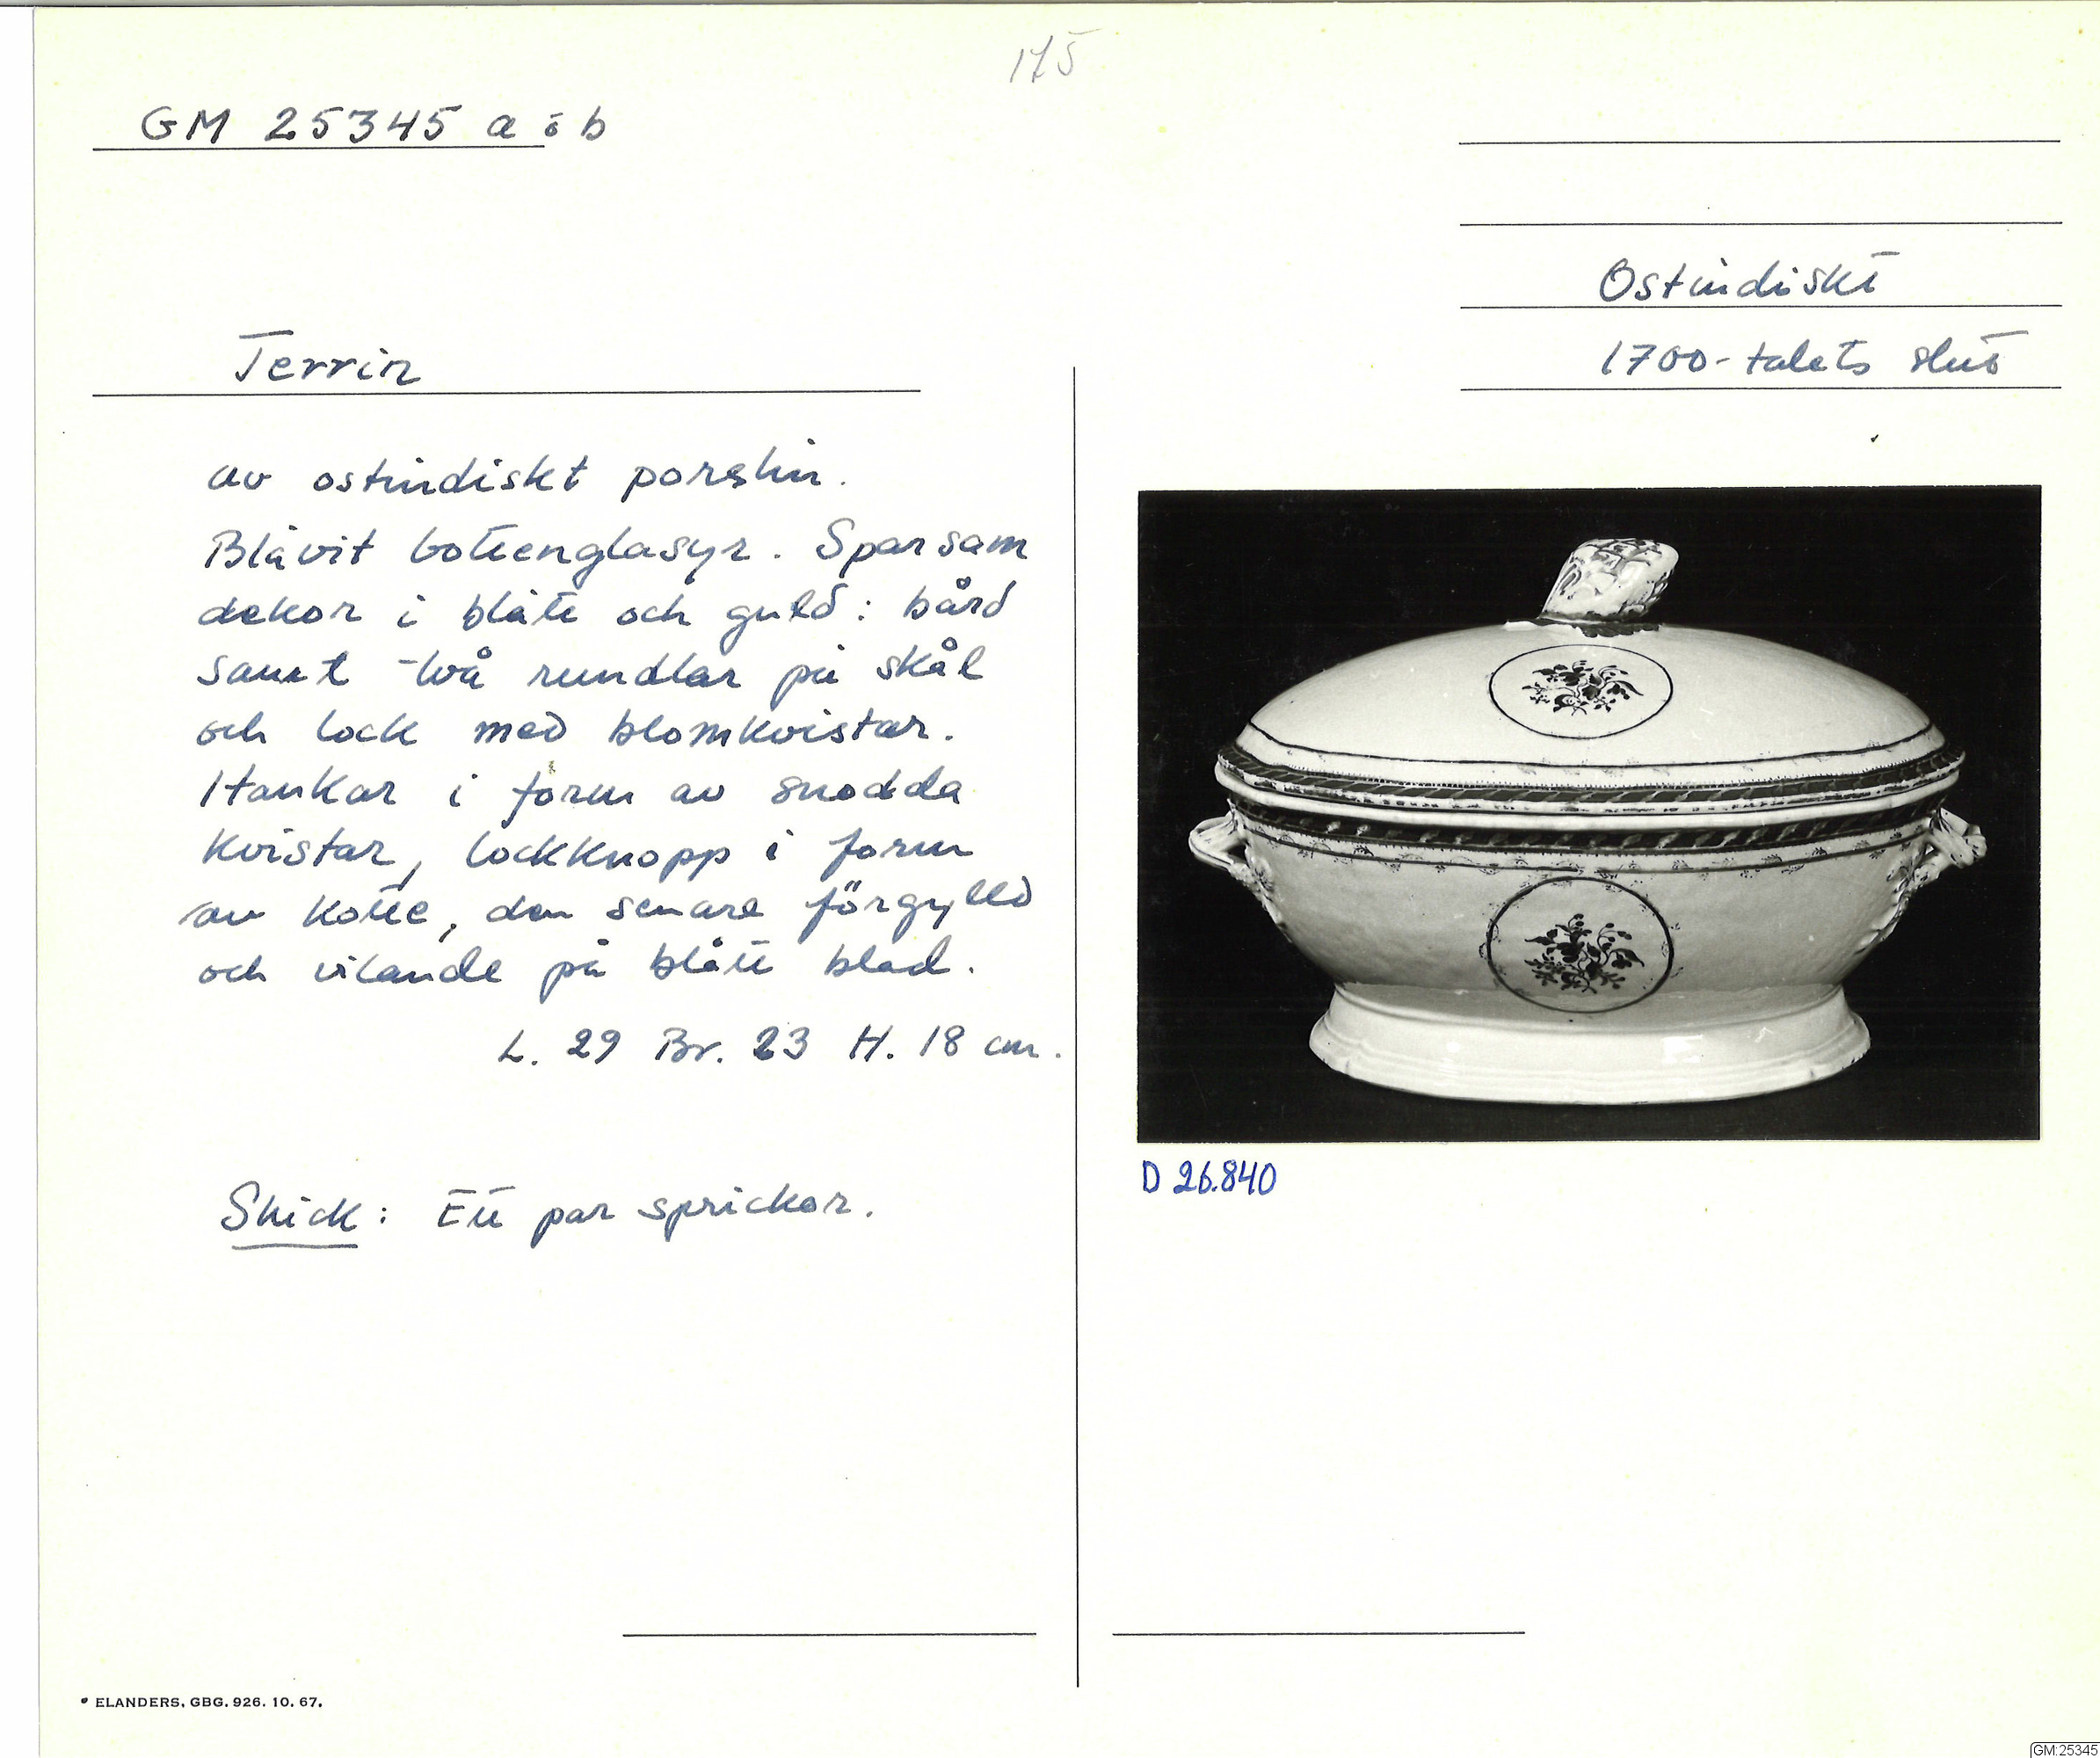 175
GM 25345 a ö b
Ostindiskt
1700-talets slut
Terrin
av ostindiskt porslin.
Blåvit bottenglasyr. Sparsam
dekor i blått och guld: bård
samt två rundlar på skål
och lock med blomkvistar.
Hankar i form av snodda
kvistar, lockknopp i form
av kotte, den senare förgylld
och vilande på blått blad.
L. 29 Br. 23 H. 18 cm.
D 26.840
Skick: Ett par sprickor.
ELANDERS, GBG. 926. 10. 67.
GM:25345